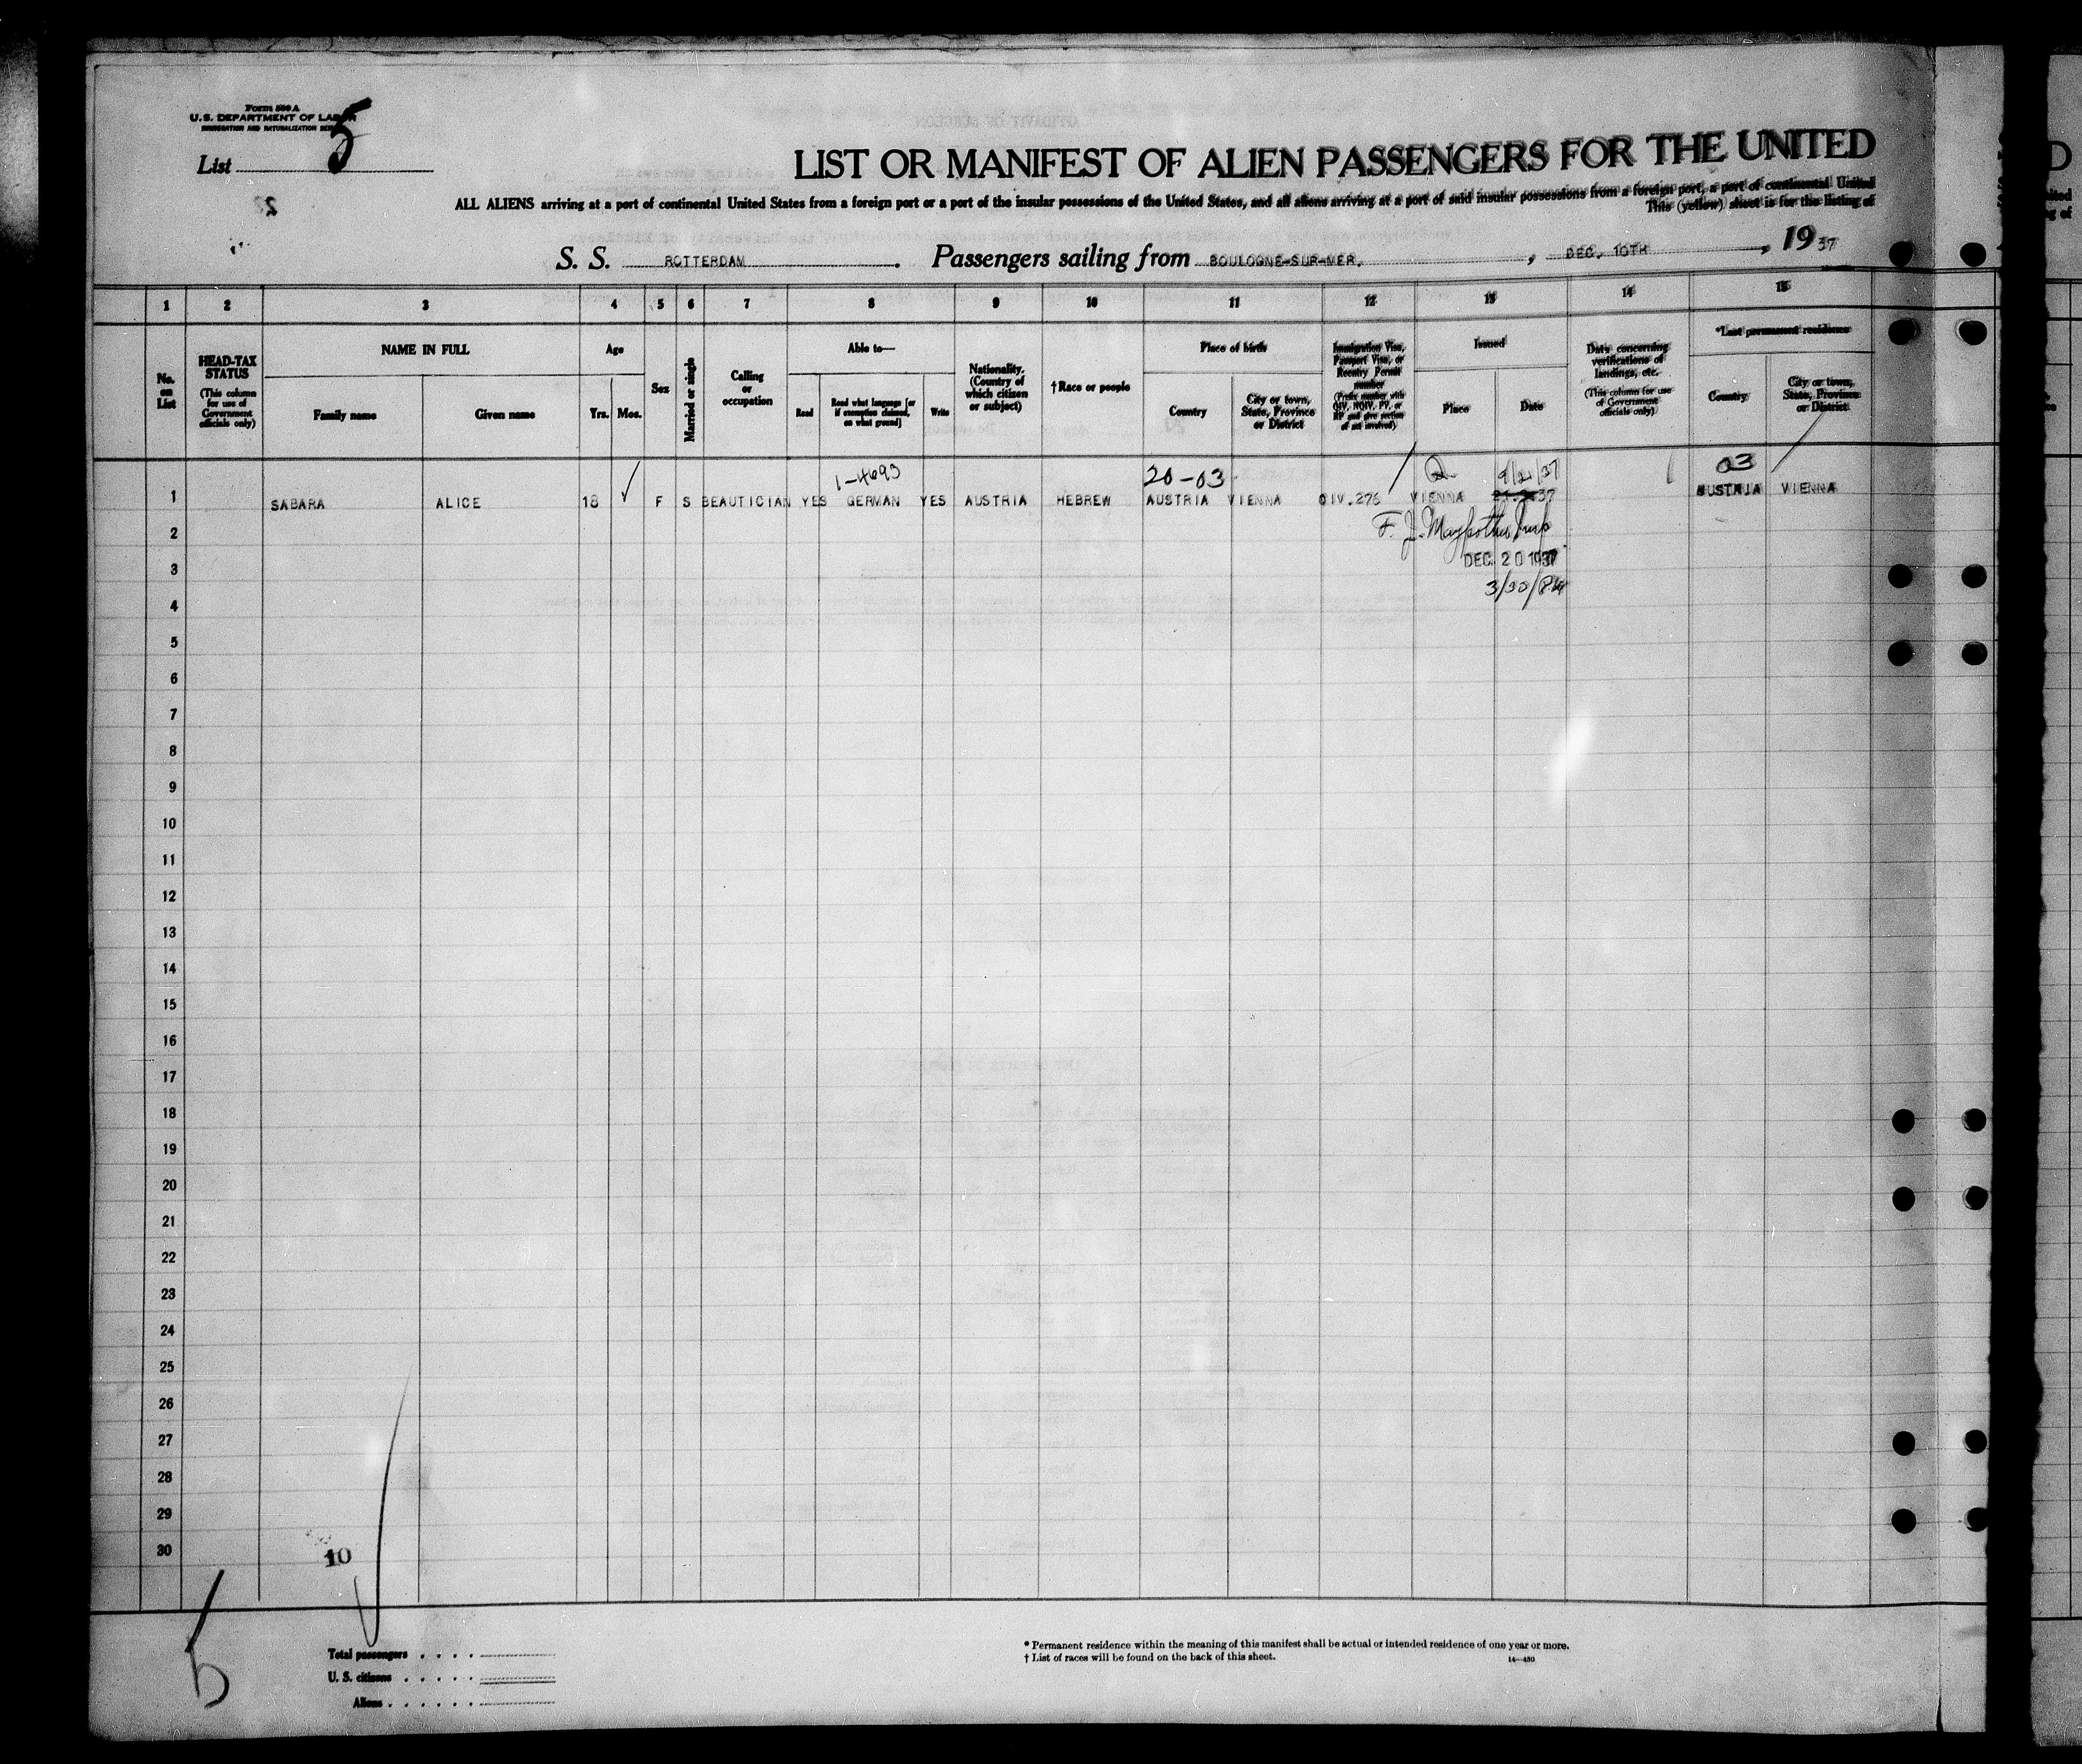 Form 500 A
U.S. DEPARTMENT OF LABOR
IMMIGRATION AND NATURALIZATION SERVICE
List 5
LIST OR MANIFEST OF ALIEN PASSENGERS FOR THE UNITED
ALL ALIENS arriving at a port of continental United States from a foreign port or a port of the insular possessions of the United States, and all aliens arriving at a port of said insular possessions from a foreign port, a port of continental United
This (yellow) sheet is for the listing of
S. S. ROTTERDAM. Passengers sailing from BOULOGNE-SUR-MER, , DEC. 10TH , 1937
1 2 3 4 5 6 7 8 9 10 11 12 13 14 15
No. on List
HEAD-TAX STATUS
(This column for use of Government officials only)
NAME IN FULL
Family name
Given name
Age
Yrs. Mos.
Sex
Married or single
Calling or occupation
Able to—
Read
Read what language [or if exemption claimed, on what ground]
Write
Nationality. (Country of which citizen or subject)
†Race or people
Place of birth
Country
City or town, State, Province or District
Immigration Visa, Passport Visa, or Reentry Permit number
(Prefix number with QIV, NQIV, PV, or RP and give section of act involved)
Issued
Place
Date
Data concerning verifications of landings, etc.
(This column for use of Government officials only)
*Last permanent residence
Country
City or town, State, Province or District
1-4693 20-03 Q 9/21/37 03
1 SABARA ALICE 18 F S BEAUTICIAN YES GERMAN YES AUSTRIA HEBREW AUSTRIA VIENNA QIV.276 VIENNA AUSTRIA VIENNA
2
3 DEC 20 1937
4
5
6
7
8
9
10
11
12
13
14
15
16
17
18
19
20
21
22
23
24
25
26
27
28
29
30
10
Total passengers
U. S. citizens
Aliens
* Permanent residence within the meaning of this manifest shall be actual or intended residence of one year or more.
† List of races will be found on the back of this sheet.
14—430